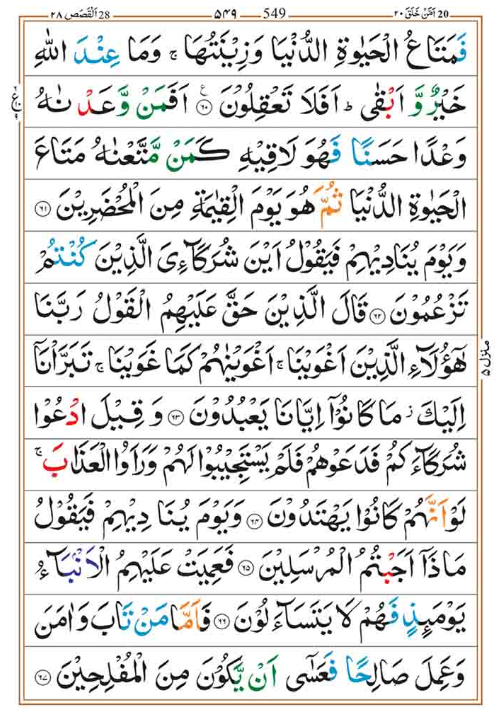 20 اَمَّنْ خَلَقَ ٢٠ 549 ٥٤٩ 28 اَلْقَصَص ٢٨
فَمَتَاعُ الْحَيٰوةِ الدُّنْيَا وَزِيْنَتُهَا ۚ وَمَا عِنْدَ اللّٰهِ
خَيْرٌ وَّ اَبْقٰى ؕ اَفَلَا تَعْقِلُوْنَ ﴿٦٠﴾ اَفَمَنْ وَّعَدْ نٰهُ
وَعْدًا حَسَنًا فَهُوَ لَاقِيْهِ كَمَنْ مَّتَّعْنٰهُ مَتَاعَ
الْحَيٰوةِ الدُّنْيَا ثُمَّ هُوَ يَوْمَ الْقِيٰمَةِ مِنَ الْمُحْضَرِيْنَ ﴿٦١﴾
وَيَوْمَ يُنَادِيْهِمْ فَيَقُوْلُ اَيْنَ شُرَكَآءِىَ الَّذِيْنَ كُنْتُمْ
تَزْعُمُوْنَ ﴿٦٢﴾ قَالَ الَّذِيْنَ حَقَّ عَلَيْهِمُ الْقَوْلُ رَبَّنَا
هٰٓؤُلَآءِ الَّذِيْنَ اَغْوَيْنَا ۚ اَغْوَيْنٰهُمْ كَمَا غَوَيْنَا ۚ تَبَرَّاْنَاۤ
اِلَيْكَ ز مَا كَانُوْۤا اِيَّانَا يَعْبُدُوْنَ ﴿٦٣﴾ وَ قِيْلَ ادْعُوْا
شُرَكَآءَكُمْ فَدَعَوْهُمْ فَلَمْ يَسْتَجِيْبُوْا لَهُمْ وَرَاَوُا الْعَذَابَ ۚ
لَوْ اَنَّهُمْ كَانُوْا يَهْتَدُوْنَ ﴿٦٤﴾ وَيَوْمَ يُنَا دِيْهِمْ فَيَقُوْلُ
مَاذَاۤ اَجَبْتُمُ الْمُرْسَلِيْنَ ﴿٦٥﴾ فَعَمِيَتْ عَلَيْهِمُ الْاَنْۢبَآءُ
يَوْمَئِذٍ فَهُمْ لَا يَتَسَآءَلُوْنَ ﴿٦٦﴾ فَاَمَّا مَنْ تَابَ وَاٰمَنَ
وَعَمِلَ صَالِحًا فَعَسٰٓى اَنْ يَّكُوْنَ مِنَ الْمُفْلِحِيْنَ ﴿٦٧﴾
منزل ٥